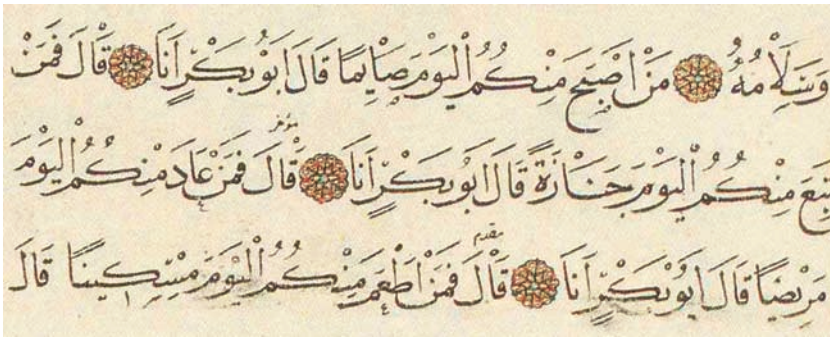 وَسَلَامُهُ مَنْ اَصْبَحَ مِنْكُمُ الْيَوْمَ صَايِمًا قَالَ اَبُوبَكْرٍ اَنَا قَالَ فَمَنْ
تَبِعَ مِنْكُمُ الْيَوْمَ جَنَازَةً قَالَ اَبُوبَكْرٍ اَنَا قَالَ فَمَنْ عَادَ مِنْكُمُ الْيَوْمَ
مَرِيضًا قَالَ اَبُوبَكْرٍ اَنَا قَالَ فَمَنْ اَطْعَمَ مِنْكُمُ الْيَوْمَ مِسْكِينًا قَالَ